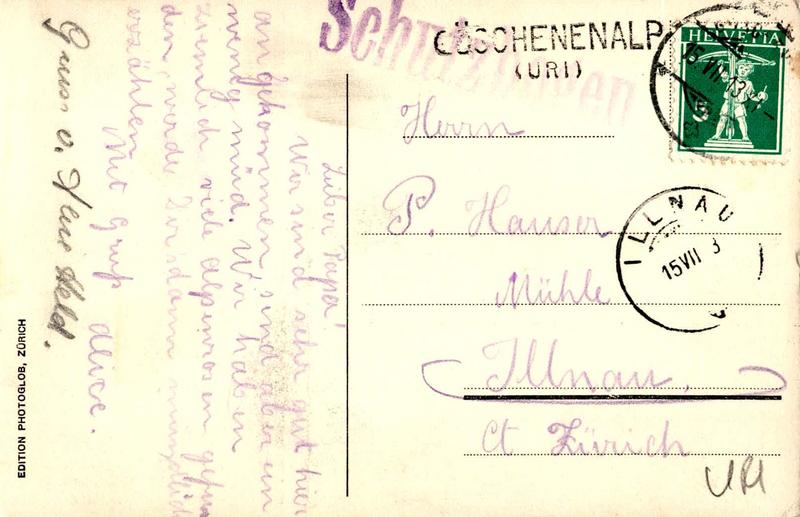 Schutz
GÖSCHENENALP
(URI)
HELVETIA
5
15 VII 13
ILLNAU
15 VII 3
Herrn
P. Hauser
Mühle
Illnau,
Ct Zürich
URI
Lieber Papa!
Wir sind sehr gut hier
angekommen, sind aber ein
wenig müd. Wir haben
ziemlich viele alpenrosen gefun
den, werde Dir dann mündlich
erzählen
Mit Gruß alice.
Gruss v. Held.
EDITION PHOTOGLOB, ZÜRICH